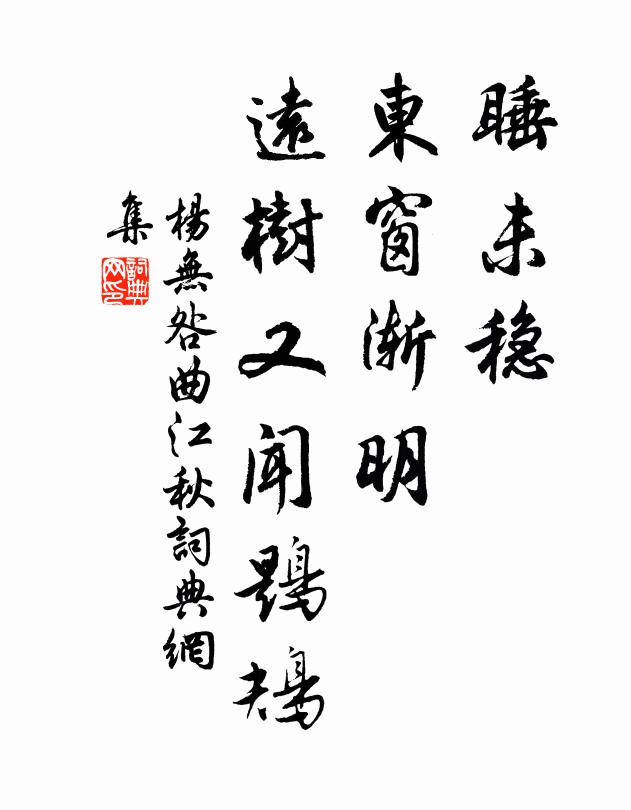 睡未穩
東窗漸明
遠樹又聞鶗鴂
楊無咎曲江秋詞典網
集
詞典網印